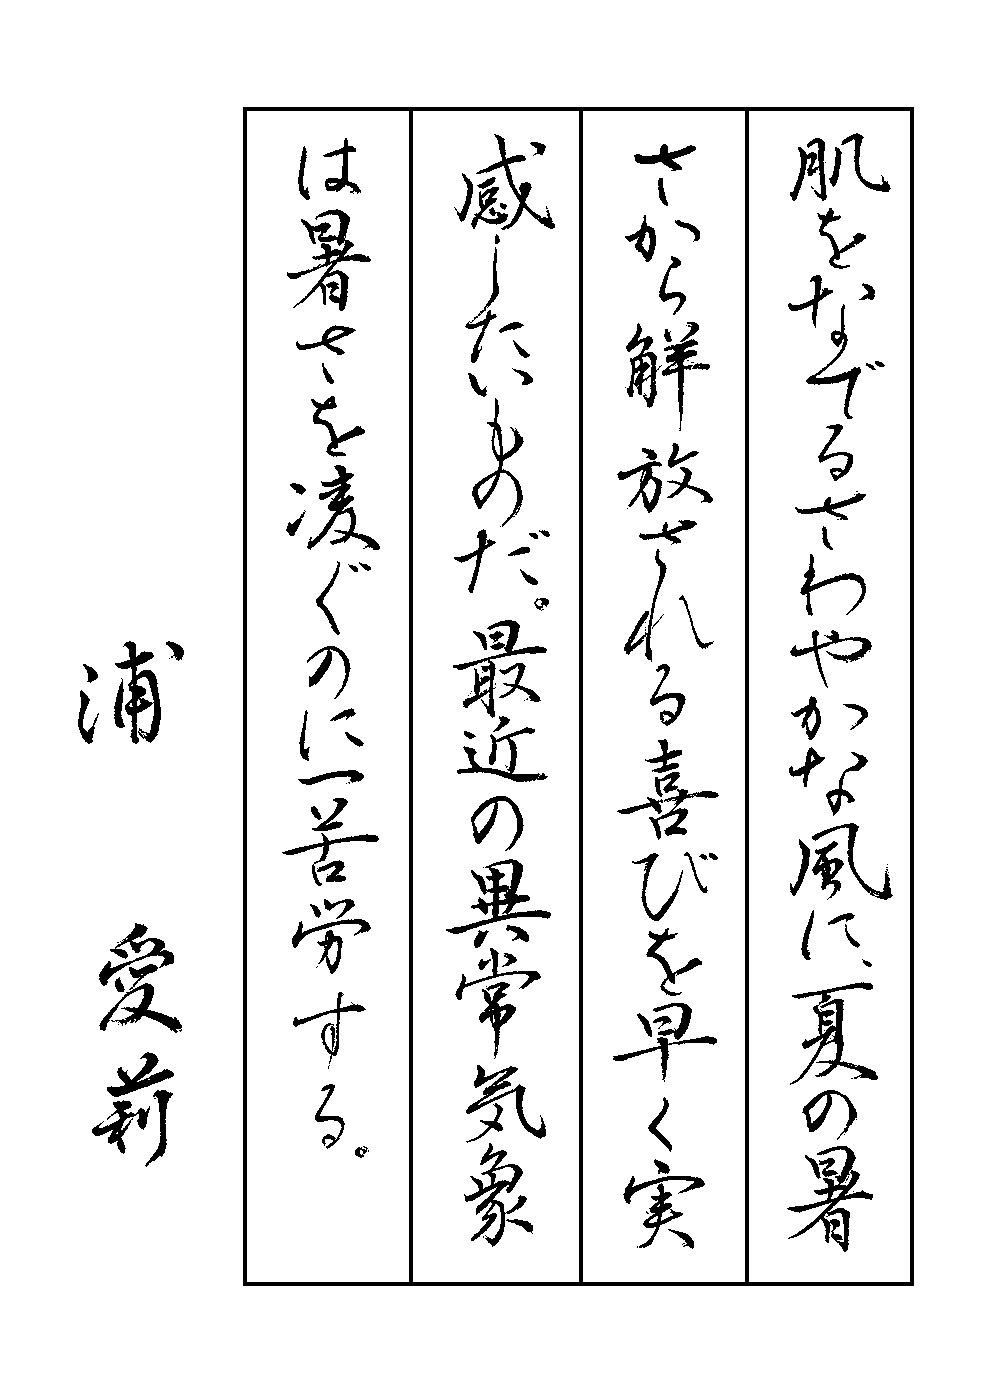 肌をなでるさわやかな風に、夏の暑
さから解放される喜びを早く実
感したいものだ。最近の異常気象
は暑さを凌ぐのに一苦労する。
浦 愛莉